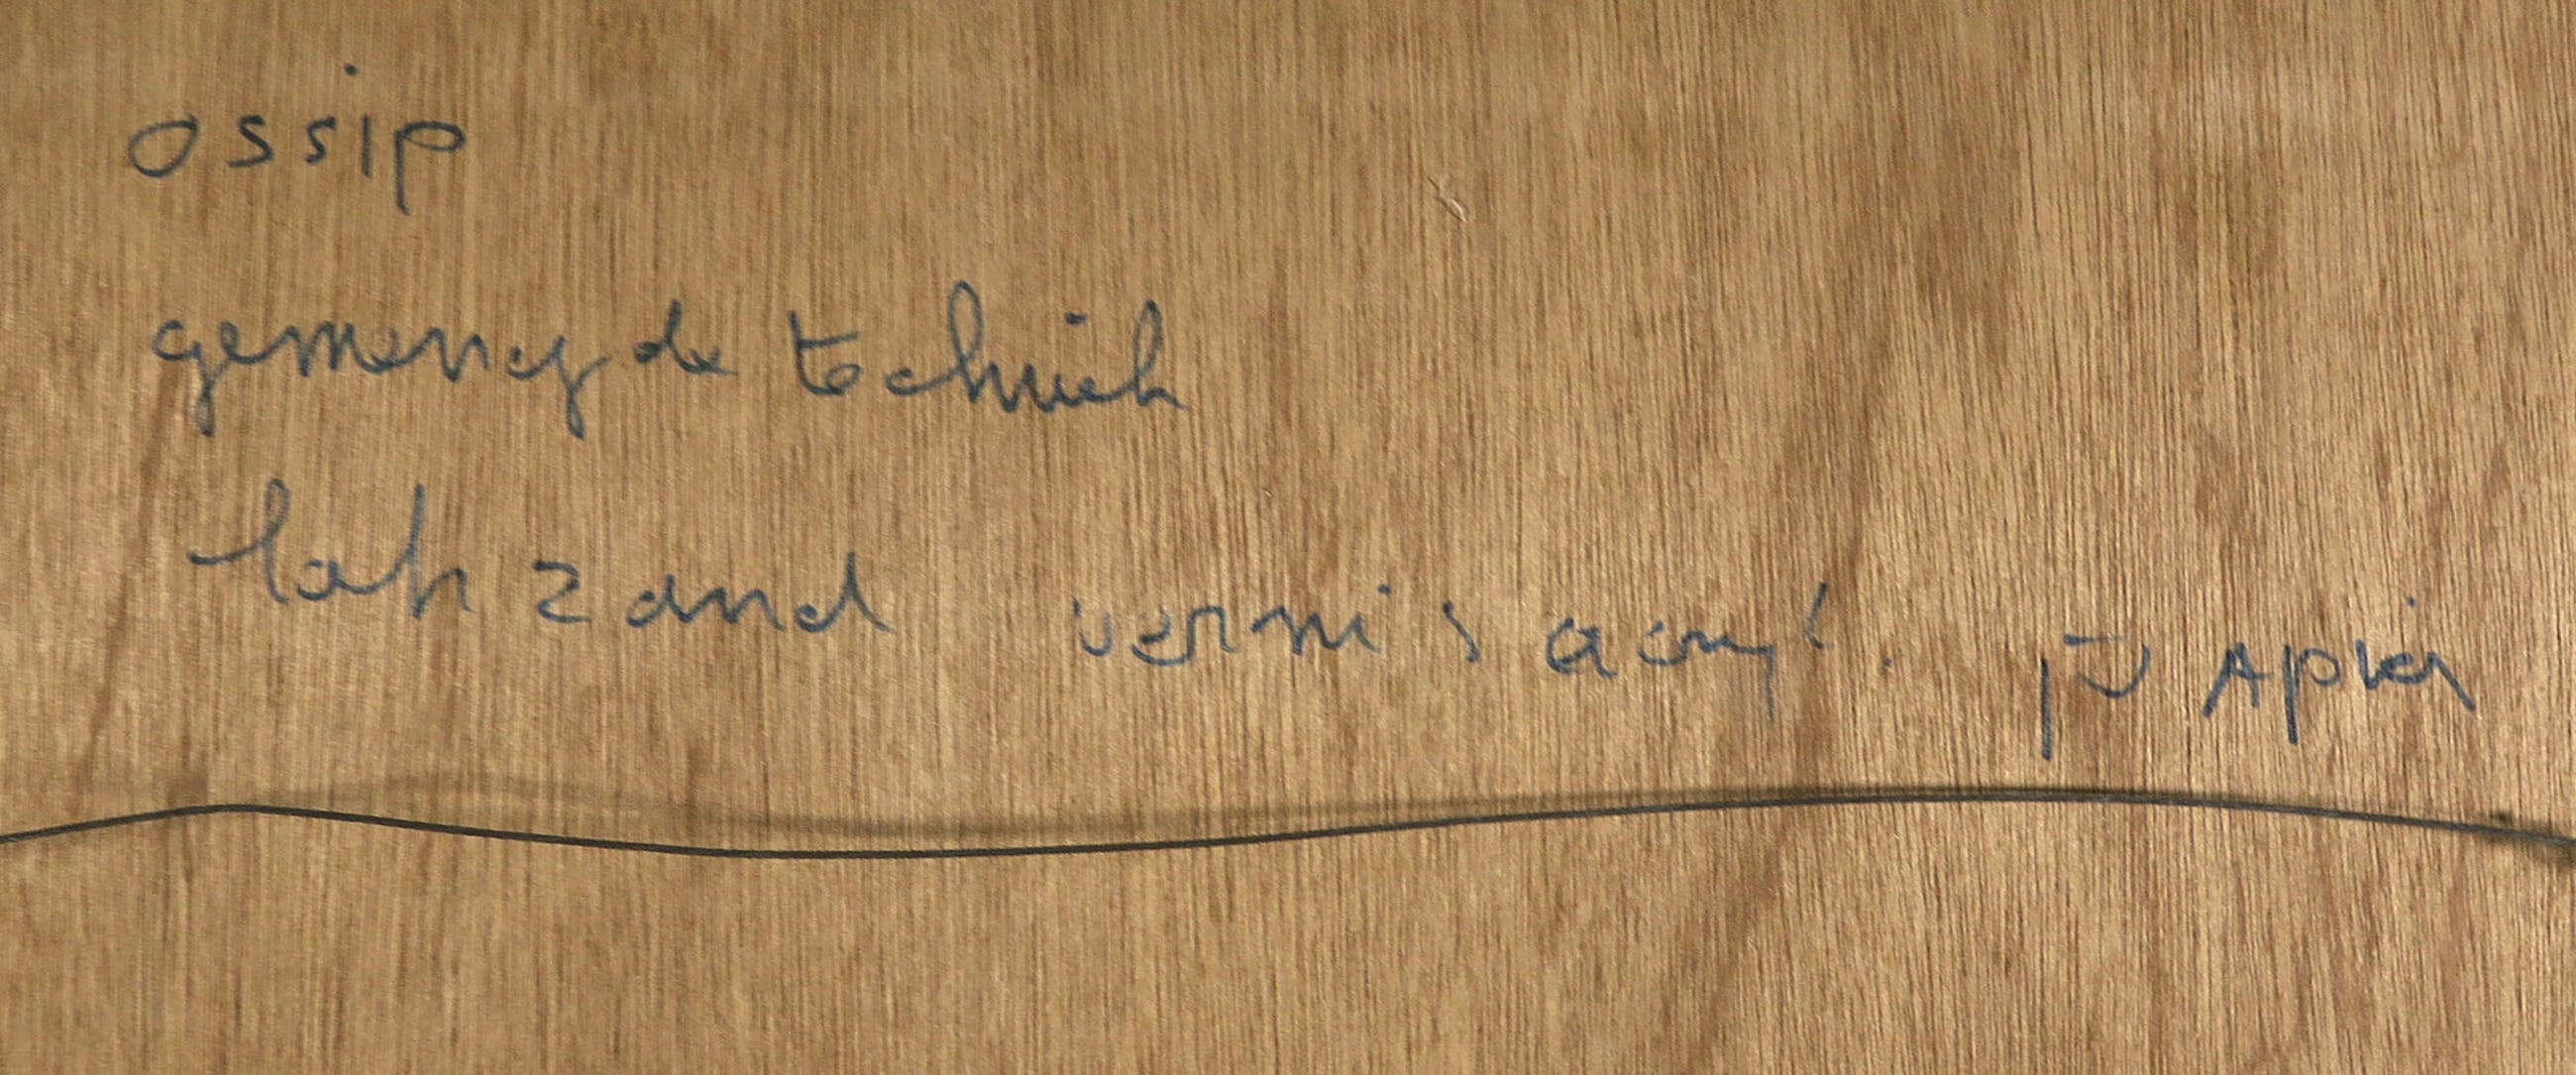 ossip
gemengde techniek
lak zand vernis acryl. papier